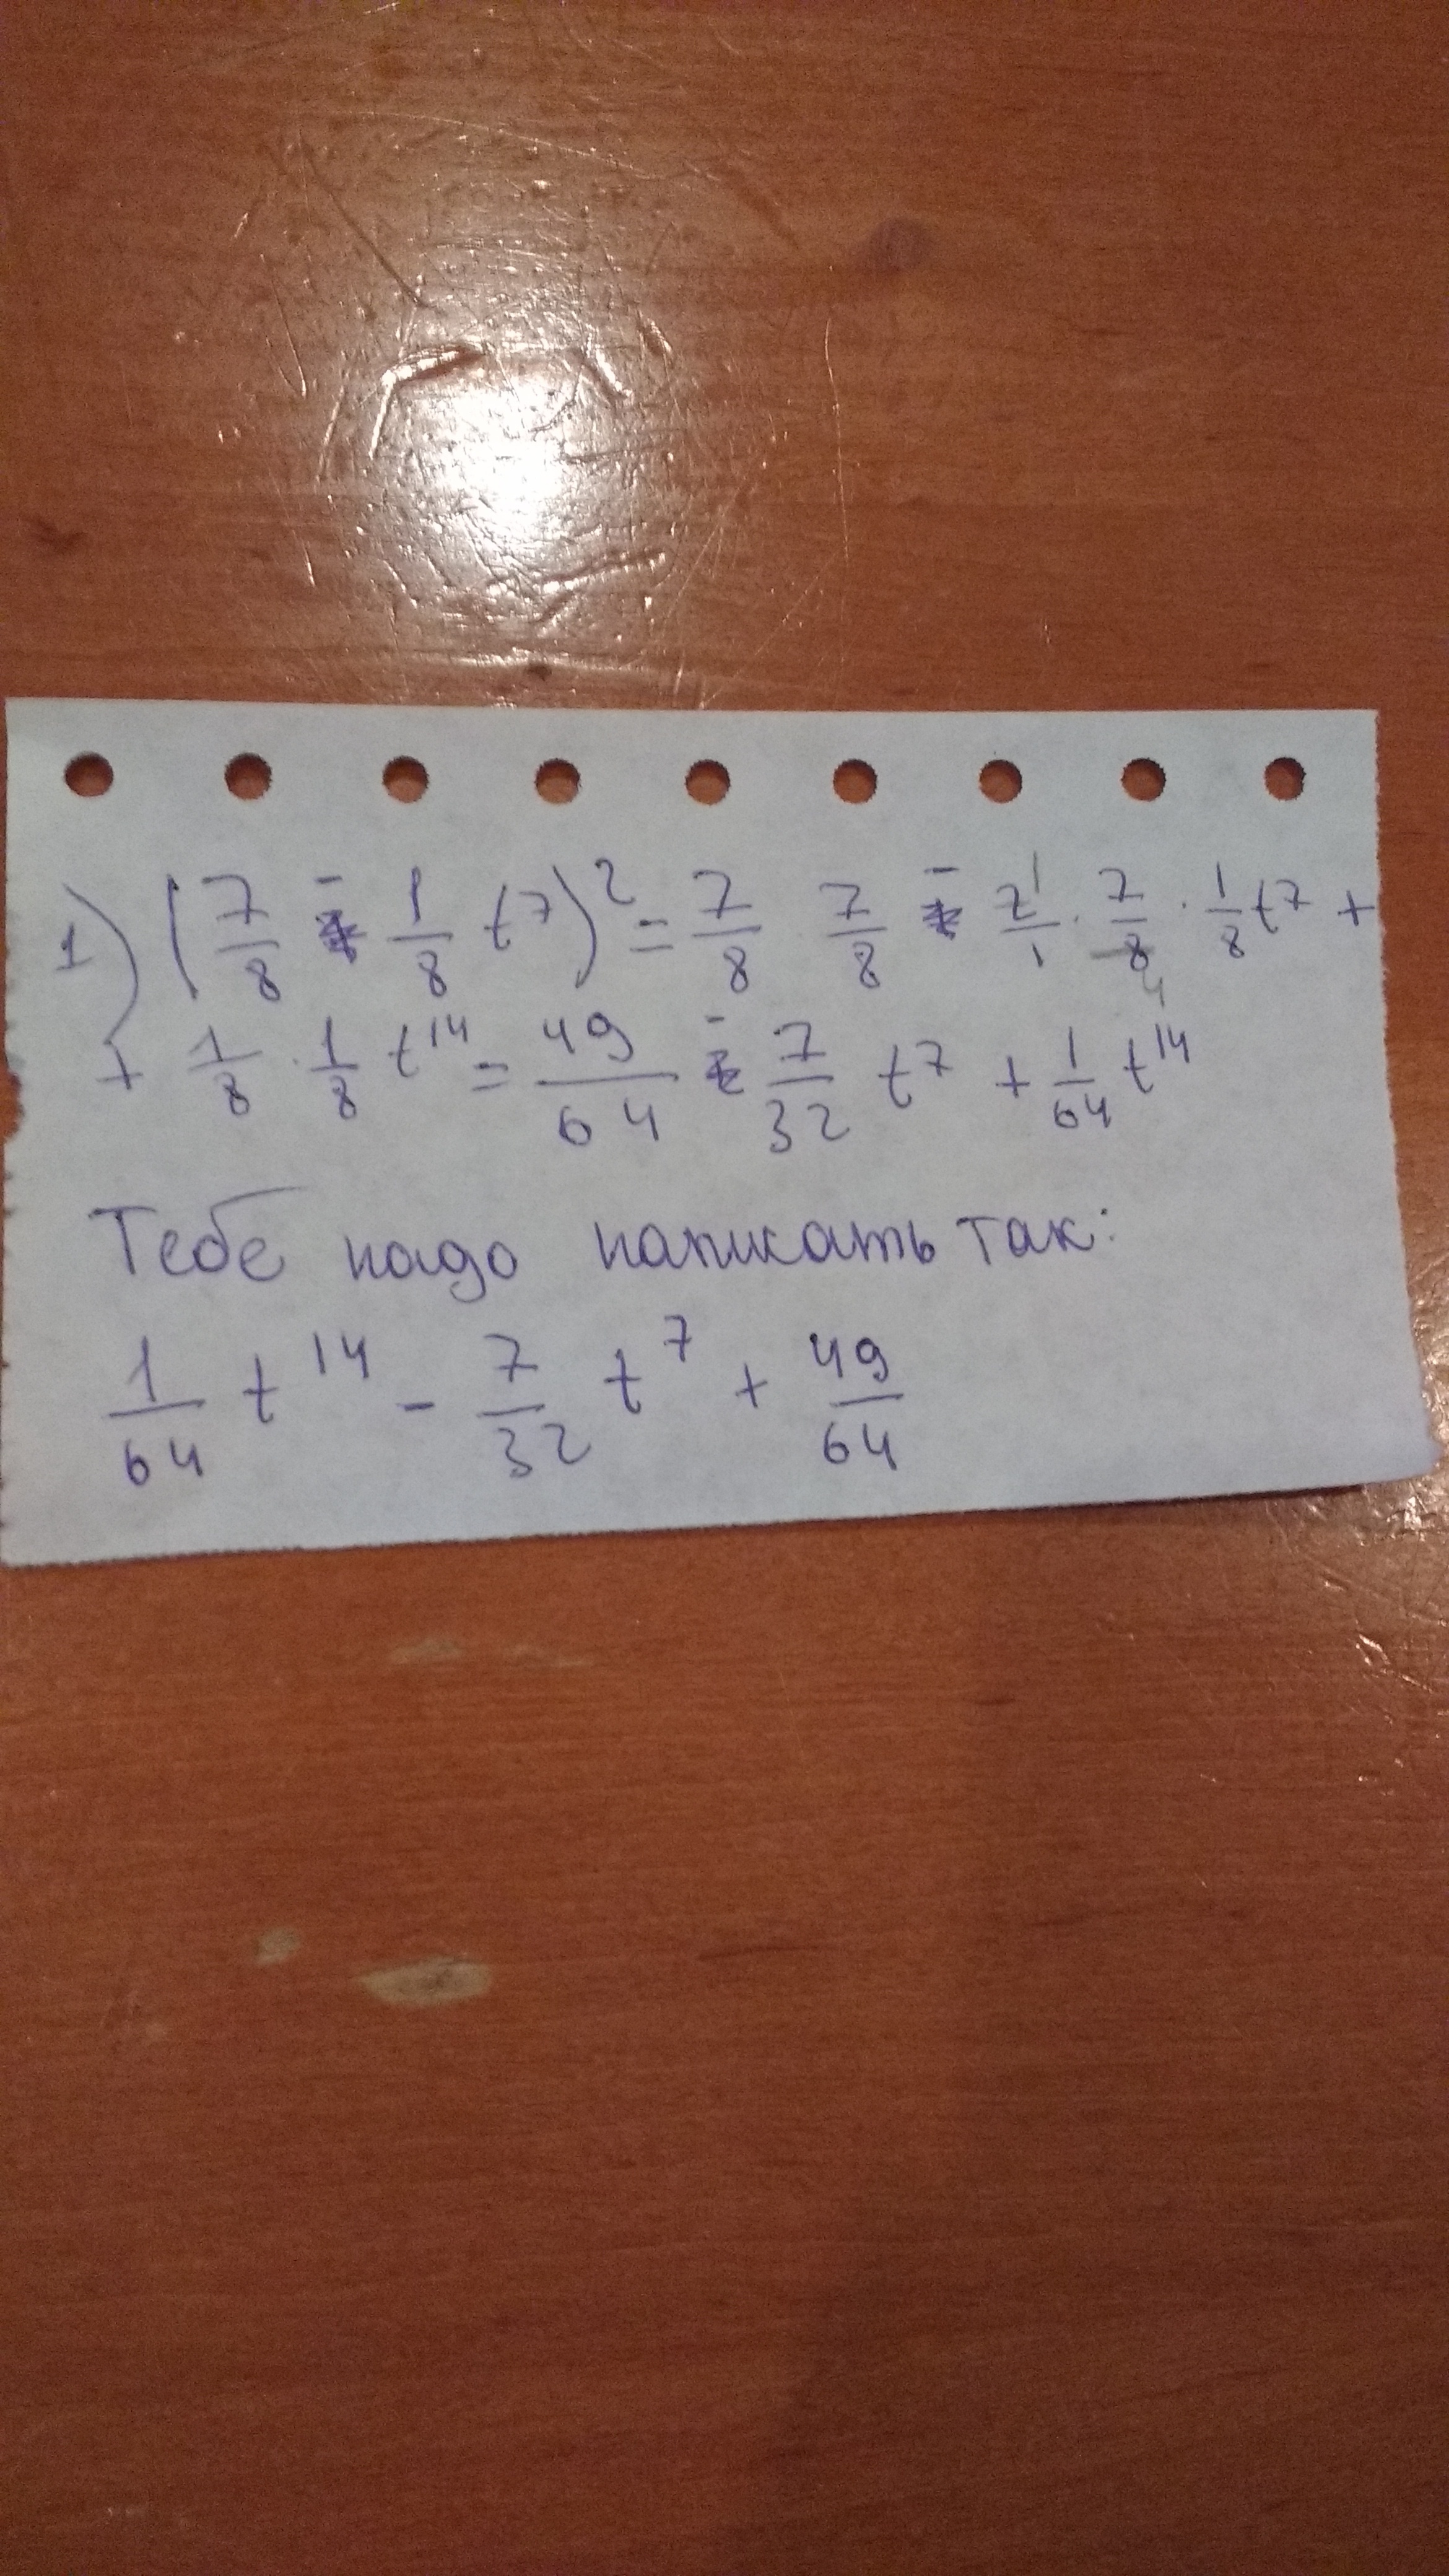 1) (7/8 - 1/8 t⁷)² = 7/8 · 7/8 - 2/1 · 7/8 · 1/8 t⁷ +
+ 1/8 · 1/8 t¹⁴ = 49/64 - 7/32 t⁷ + 1/64 t¹⁴
Тебе надо написать так:
1/64 t¹⁴ - 7/32 t⁷ + 49/64